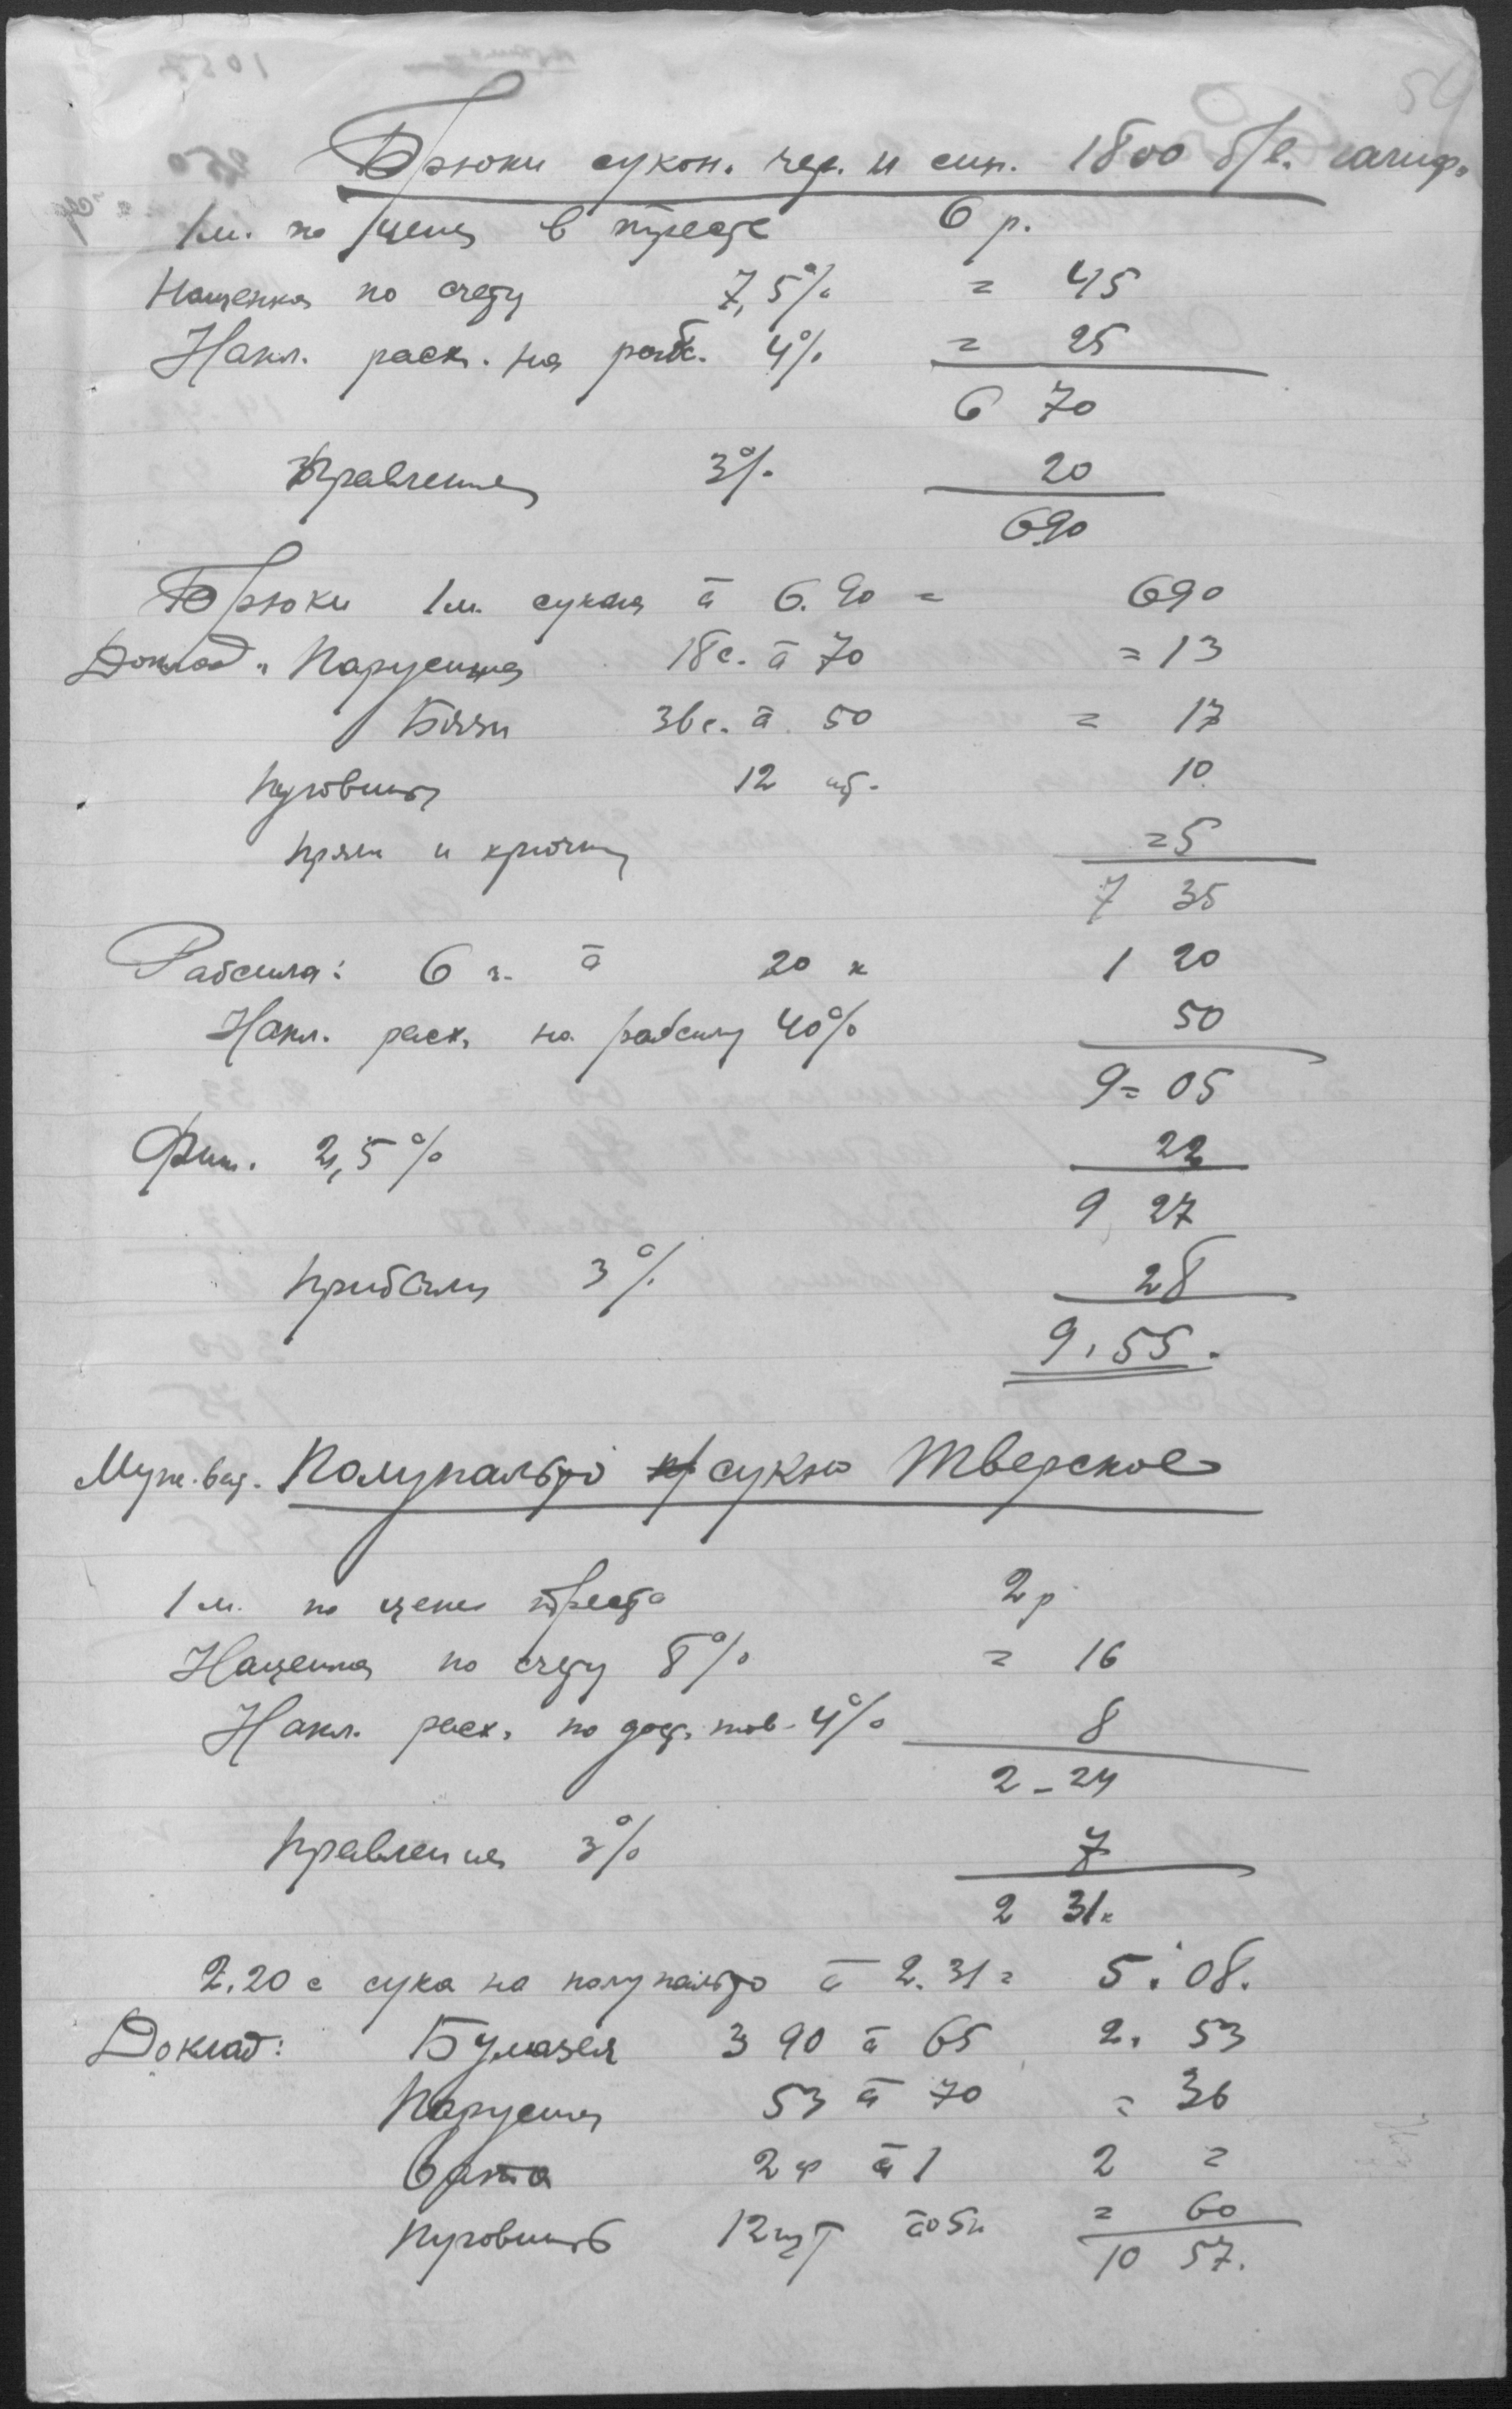 54
Брюки сукон. чер. и син. 1800 б/в. галиф.
1 м. по цене в тресте 6 р.
Наценка по счету 7,5% = 45
Накл. расх. на 4% = 25
6 70
Правление 3% 20
6.90
Брюки 1 м. сукна à 6.90 = 690
Доклад " Парусина 18 с. à 70 = 13
Бязи 36 с. à 50 = 17
Пуговицы 12 шт. 10
Пряж и крючки = 5
7 35
Рабсила: 6 ч. à 20 к 1 20
Накл. расх. на рабсилу 40% 50
9 = 05
Фин. 2,5% 22
9 27
Прибыли 3% 28
9,55.
Муж. ват. Полупальто сукно Тверское
1 м. по цене треста 2 р
Наценка по счету 8% = 16
Накл. расх. по дост. тов. 4% 8
2 - 24
Правление 3% 7
2 31 к
2.20 с сука на полупальто à 2.31 = 5.08.
Доклад: Бумазея 3 90 à 65 2. 53
Парусина 53 à 70 = 36
Вата 2 ф à 1 2 =
Пуговицы 12 шт à 05 к = 60
10 57.